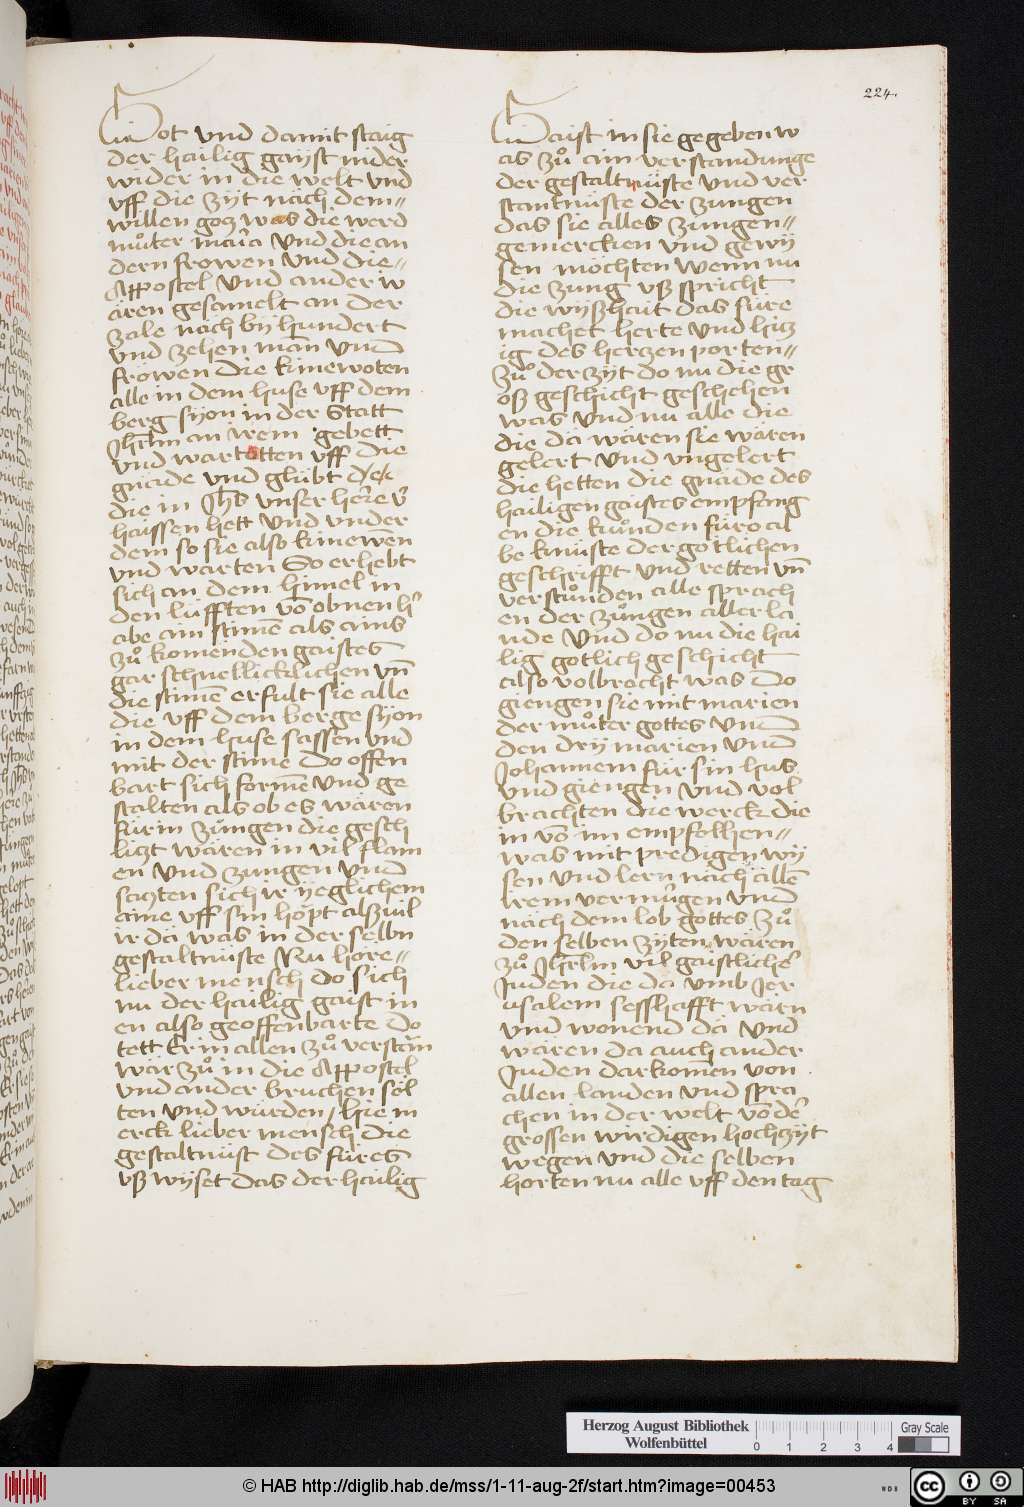 224.
Got vnd damit staig
der hailig gayst nider
wider in die welt vnd
vff die zyt nach dem
willen gotz was die werd
můter maria Vnd die an
dern frowen Vnd die
Appostel Vnd ander iv
aren gesamelt an der
zale nach by hundert
vnd zehen man Vnnd
frowen die kinewoten
alle in dem huse vff dem
berg syon in der Statt
Jhrlm an irem gebett
vnd wartotten vff die
gnade vnd glübt
die in Jhs vnser here
haissen hett Vnd vnder
dem so sie also kinewen
vnd warten So erhebt
sich an dem himel in
den lüfften vō obnen
abe ain stimē als ains
zů komenden gaistes
gar schnellicklichen vn̄
die stimē erfult sie alle
die vff dem berge syon
in dem huse sassen vnd
mit der stime Do offen
bart sich formē Vnd ge
stalten als ob es wären
fürin zungen die gesch
litzt wären in vil flam
en Vnd zungen Vnnd
saczten sich ir yeglichem
aine vff sin höpt alßuil
ir da was in der selbn
gestaltnüste Nu höre
lieber mensch do sich
nu der hailig gaist in
en also geoffenbarte Do
tett Er in allen zů verstān
wär zů in die Appostel
vnd ander bruchen söl
ten vnd würden / hie m
erck lieber mensch die
gestaltnüst des füres
vß wyset das der hailig
Gaist in sie gegeben w
as zů ain verstandunge
der gestaltnüste Vnd ver
stantnüste der zungen
das sie alles zungen
gemercken vnd gewy
sen möchten Wenn nu
die zung vß spricht
die wyßhait das füre
machet herte Vnd hitz
ig des herzen porten
zů der zyt do nu die gr
oß geschicht geschehen
was Vnd nu alle die
die da wären sie wären
gelert Vnd vngelert
die hetten die gnade des
hailigen gaistes empfang
en die kunden füro al
be knüste der götlichen
geschrifft Vnd retten vn̄
verstůnden alle sprach
en der zungen aller la
nde Vnd do nu die hai
lig gotlich geschicht
also volbracht was Do
giengen sie mit marien
der můter gottes Vnnd
den dry marien Vnnd
Johannem für sin hus
vnd giengen Vnd vol
brachten die werck die
in vō im empfolhen
was mit predigen wy
sen Vnd lern nach allē
irem vermügen Vnnd
nach dem lob gottes zů
den selben zyten wären
zů Jhrlm vil gaistlicher
Juden die da Vmb Jer
usalem sesshafft wärn
vnd wonend da Vnd
wären da auch ander
Juden darkomen von
allen landen vnd spra
chen in der welt vō der
grossen wirdigen hochzyt
wegen vnd die selben
horten nu alle vff den tag
Herzog August Bibliothek
Wolfenbüttel
0 1 2 3 4
Gray Scale
© HAB http://diglib.hab.de/mss/1-11-aug-2f/start.htm?image=00453
WDB
cc BY SA